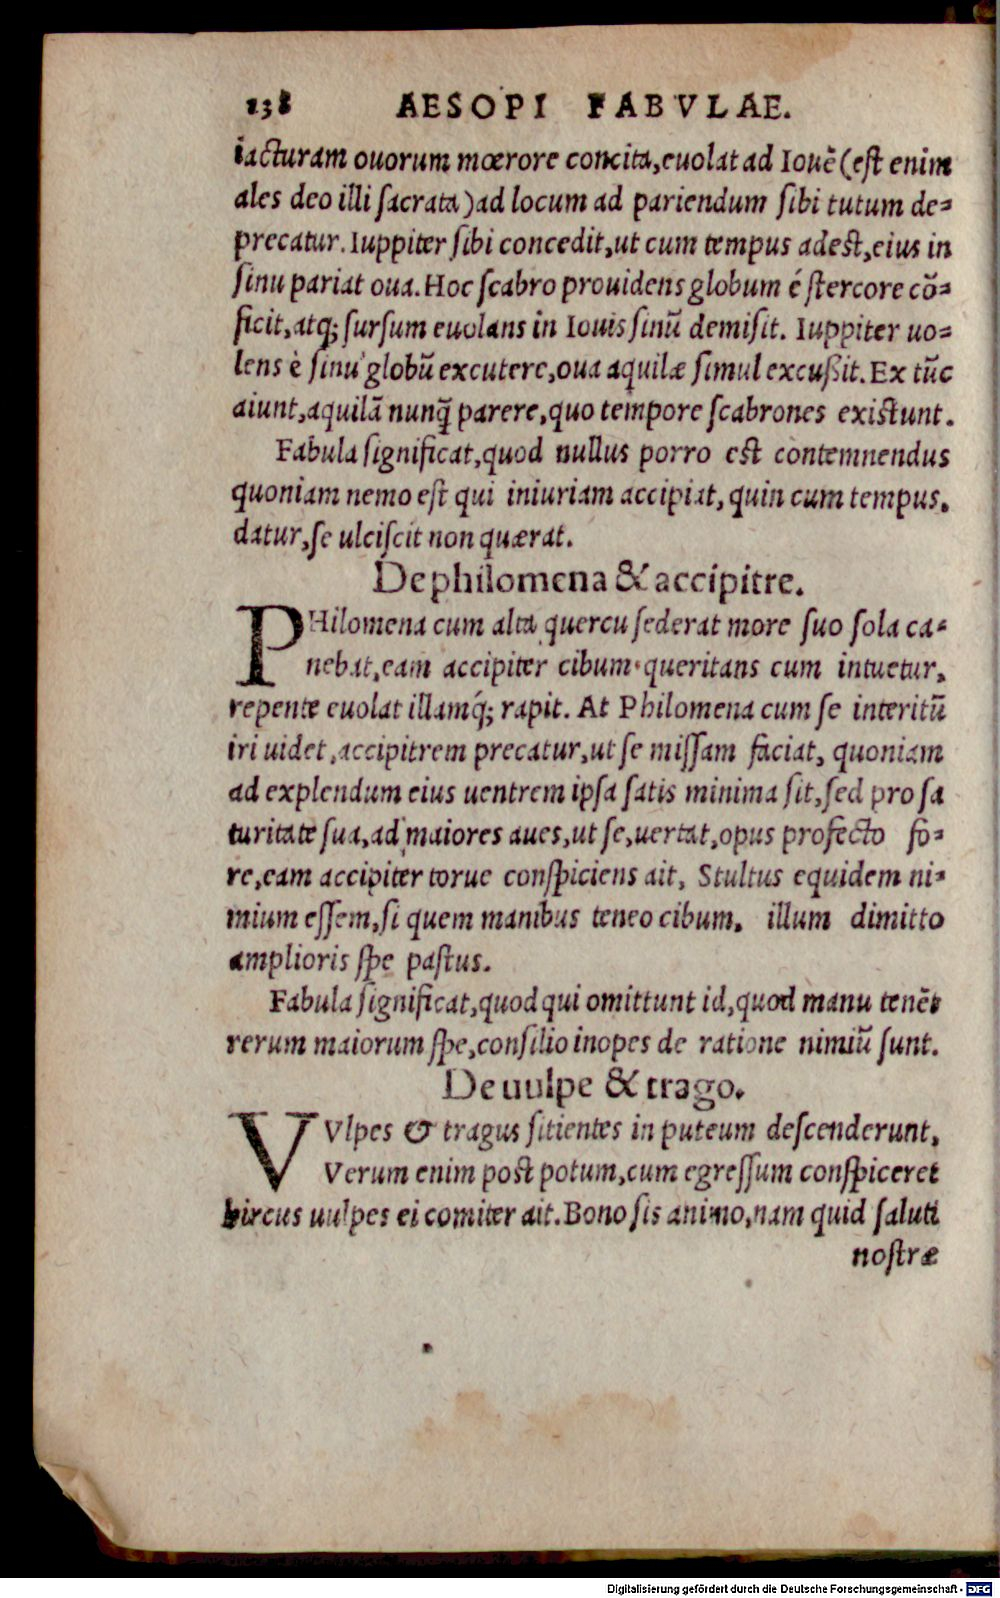 138 AESOPI FABVLAE.
iacturam ouorum mœrore concita, euolat ad Iouē (eſt enim
ales deo illi ſacrata) ad locum ad pariendum ſibi tutum de=
precatur. Iuppiter ſibi concedit, ut cum tempus adeſt, eius in
ſinu pariat oua. Hoc ſcabro prouidens globum é ſtercore cō=
ficit, atq; ſurſum euolans in Iouis ſinū demiſit. Iuppiter uo=
lens è ſinu globū excutere, oua aquilæ ſimul excußit. Ex tūc
aiunt, aquilā nunq̄ parere, quo tempore ſcabrones exiſtunt.
Fabula ſignificat, quod nullus porro eſt contemnendus
quoniam nemo eſt qui iniuriam accipiat, quin cum tempus.
datur, ſe ulciſcit non quærat.
De philomena & accipitre.
PHilomena cum alta quercu ſederat more ſuo ſola ca=
nebat, eam accipiter cibum queritans cum intuetur,
repente euolat illamq́; rapit. At Philomena cum ſe interitū
iri uidet, accipitrem precatur, ut ſe miſſam faciat, quoniam
ad explendum eius uentrem ipſa ſatis minima ſit, ſed pro ſa
turitate ſua, ad maiores aues, ut ſe, uertat, opus profecto fo=
re, eam accipiter torue conſpiciens ait, Stultus equidem ni=
mium eſſem, ſi quem manibus teneo cibum, illum dimitto
amplioris ſpe paſtus.
Fabula ſignificat, quod qui omittunt id, quod manu tenēt
rerum maiorum ſpe, conſilio inopes de ratione nimiū ſunt.
De uulpe & trago.
VVlpes & tragus ſitientes in puteum deſcenderunt,
Verum enim poſt potum, cum egreſſum conſpiceret
hircus uulpes ei comiter ait. Bono ſis animo, nam quid ſaluti
noſtræ
Digitalisierung gefördert durch die Deutsche Forschungsgemeinschaft - DFG